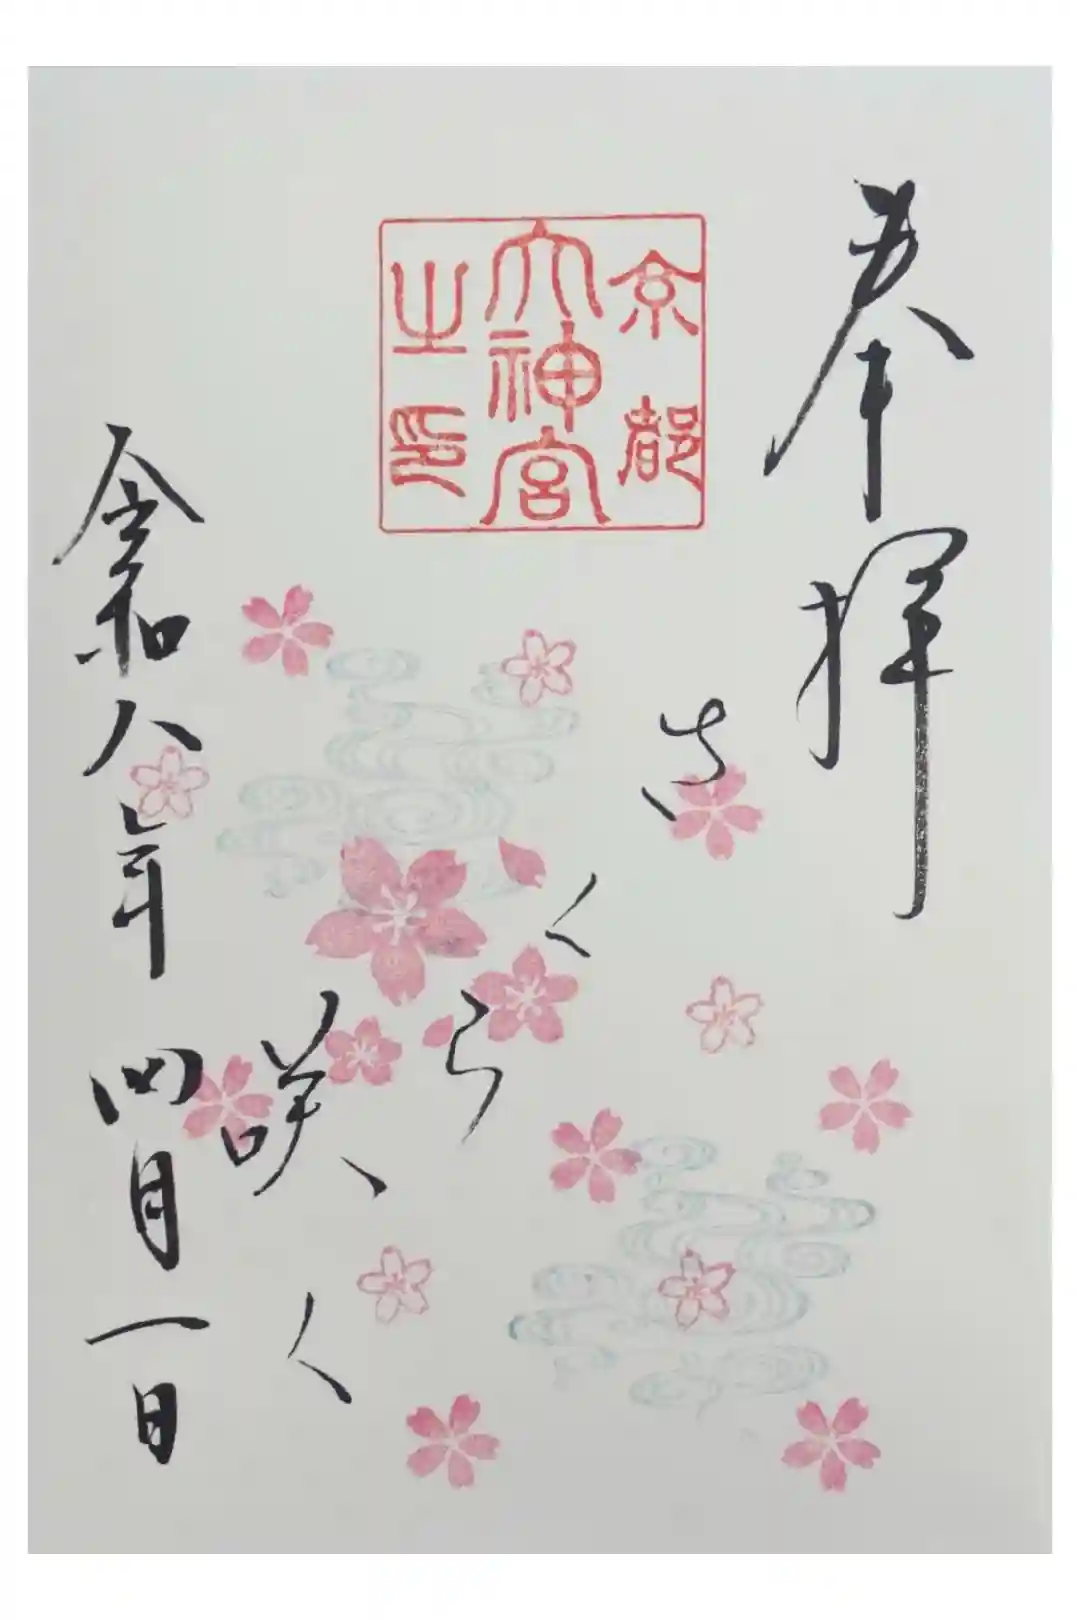 奉拝
京都
大神宮
之印
さくら
咲く
令和八年四月一日